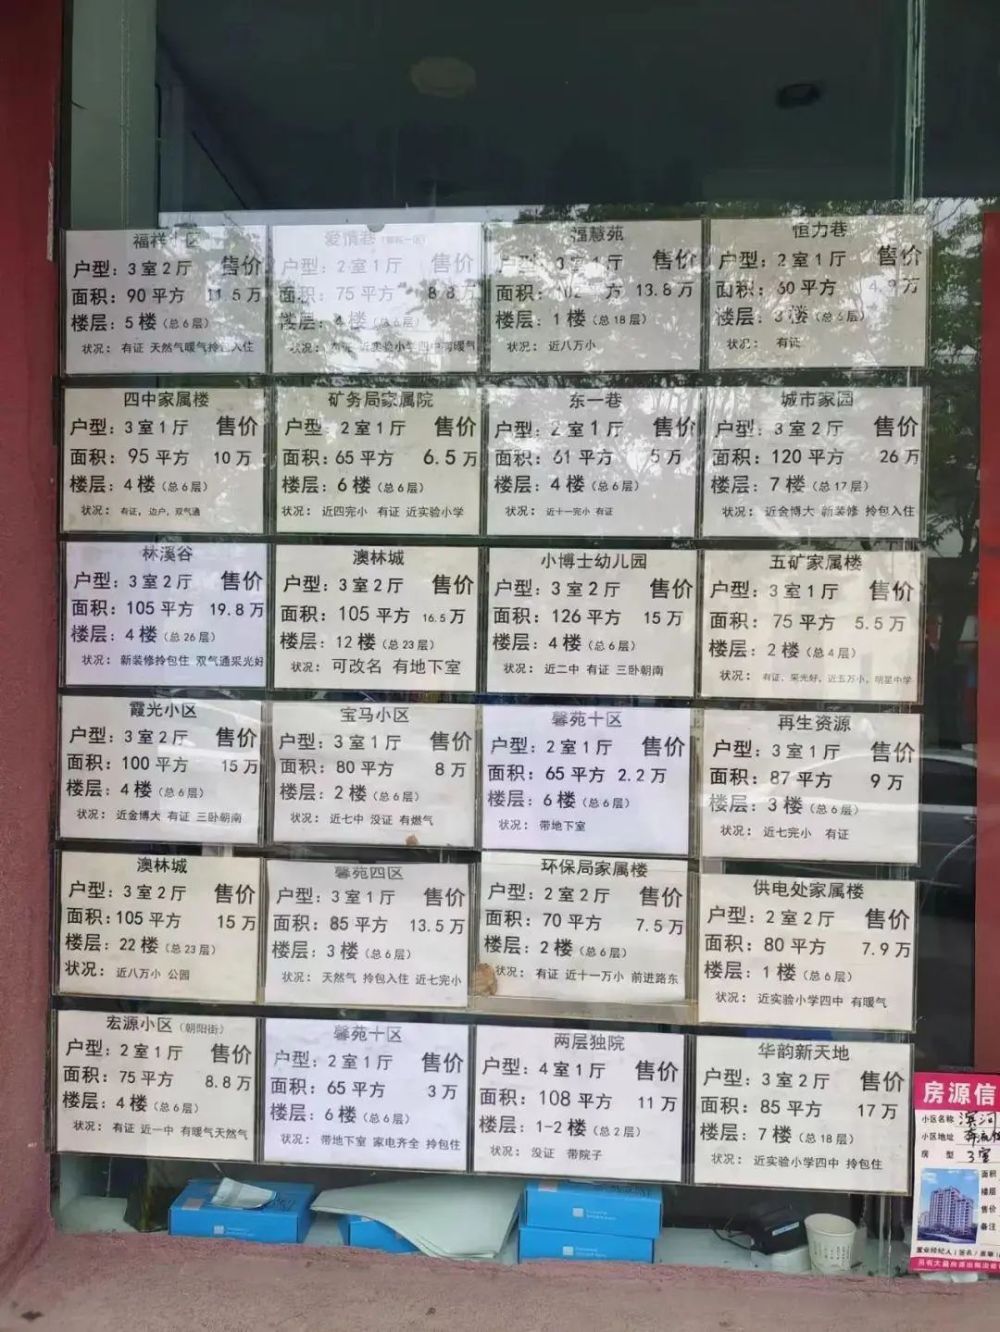 福祥小区
户型：3室2厅 售价
面积：90平方 11.5万
楼层：5楼（总6层）
状况：有证 天然气暖气拎包入住
爱情巷
户型：2室1厅 售价
面积：75平方 8.8万
楼层：4楼（总6层）
状况：有证 近实验小学四中有暖气
福慧苑
户型：3室1厅 售价
面积：102平方 13.8万
楼层：1楼（总18层）
状况：近八万小
恒力巷
户型：2室1厅 售价
面积：60平方 4.9万
楼层：3楼（总6层）
状况：有证
四中家属楼
户型：3室1厅 售价
面积：95平方 10万
楼层：4楼（总6层）
状况：有证，边户，双气通
矿务局家属院
户型：2室1厅 售价
面积：65平方 6.5万
楼层：6楼（总6层）
状况：近四完小 有证 近实验小学
东一巷
户型：2室1厅 售价
面积：61平方 5万
楼层：4楼（总6层）
状况：近十一完小 有证
城市家园
户型：3室2厅 售价
面积：120平方 26万
楼层：7楼（总17层）
状况：近金博大 新装修 拎包入住
林溪谷
户型：3室2厅 售价
面积：105平方 19.8万
楼层：4楼（总26层）
状况：新装修拎包住 双气通采光好
澳林城
户型：3室2厅 售价
面积：105平方 16.5万
楼层：12楼（总23层）
状况：可改名 有地下室
小博士幼儿园
户型：3室2厅 售价
面积：126平方 15万
楼层：4楼（总6层）
状况：近二中 有证 三卧朝南
五矿家属楼
户型：3室1厅 售价
面积：75平方 5.5万
楼层：2楼（总4层）
状况：有证，采光好，近五万小，明星中学
霞光小区
户型：3室2厅 售价
面积：100平方 15万
楼层：4楼（总6层）
状况：近金博大 有证 三卧朝南
宝马小区
户型：3室1厅 售价
面积：80平方 8万
楼层：2楼（总6层）
状况：近七中 没证 有燃气
馨苑十区
户型：2室1厅 售价
面积：65平方 2.2万
楼层：6楼（总6层）
状况：带地下室
再生资源
户型：3室1厅 售价
面积：87平方 9万
楼层：3楼（总6层）
状况：近七完小 有证
澳林城
户型：3室2厅 售价
面积：105平方 15万
楼层：22楼（总23层）
状况：近八万小 公园
馨苑四区
户型：3室1厅 售价
面积：85平方 13.5万
楼层：3楼（总6层）
状况：天然气 拎包入住 近七完小
环保局家属楼
户型：2室2厅 售价
面积：70平方 7.5万
楼层：2楼（总6层）
状况：有证 近十一万小 前进路东
供电处家属楼
户型：2室2厅 售价
面积：80平方 7.9万
楼层：1楼（总6层）
状况：近实验小学四中 有暖气
宏源小区（朝阳街）
户型：2室1厅 售价
面积：75平方 8.8万
楼层：4楼（总6层）
状况：有证 近一中 有暖气天然气
馨苑十区
户型：2室1厅 售价
面积：65平方 3万
楼层：6楼（总6层）
状况：带地下室 家电齐全 拎包住
两层独院
户型：4室1厅 售价
面积：108平方 11万
楼层：1-2楼（总2层）
状况：没证 带院子
华韵新天地
户型：3室2厅 售价
面积：85平方 17万
楼层：7楼（总18层）
状况：近实验小学四中 拎包住
房源信
小区名称 滨河
小区地址
房型 3室
面积
楼层
售价
备注